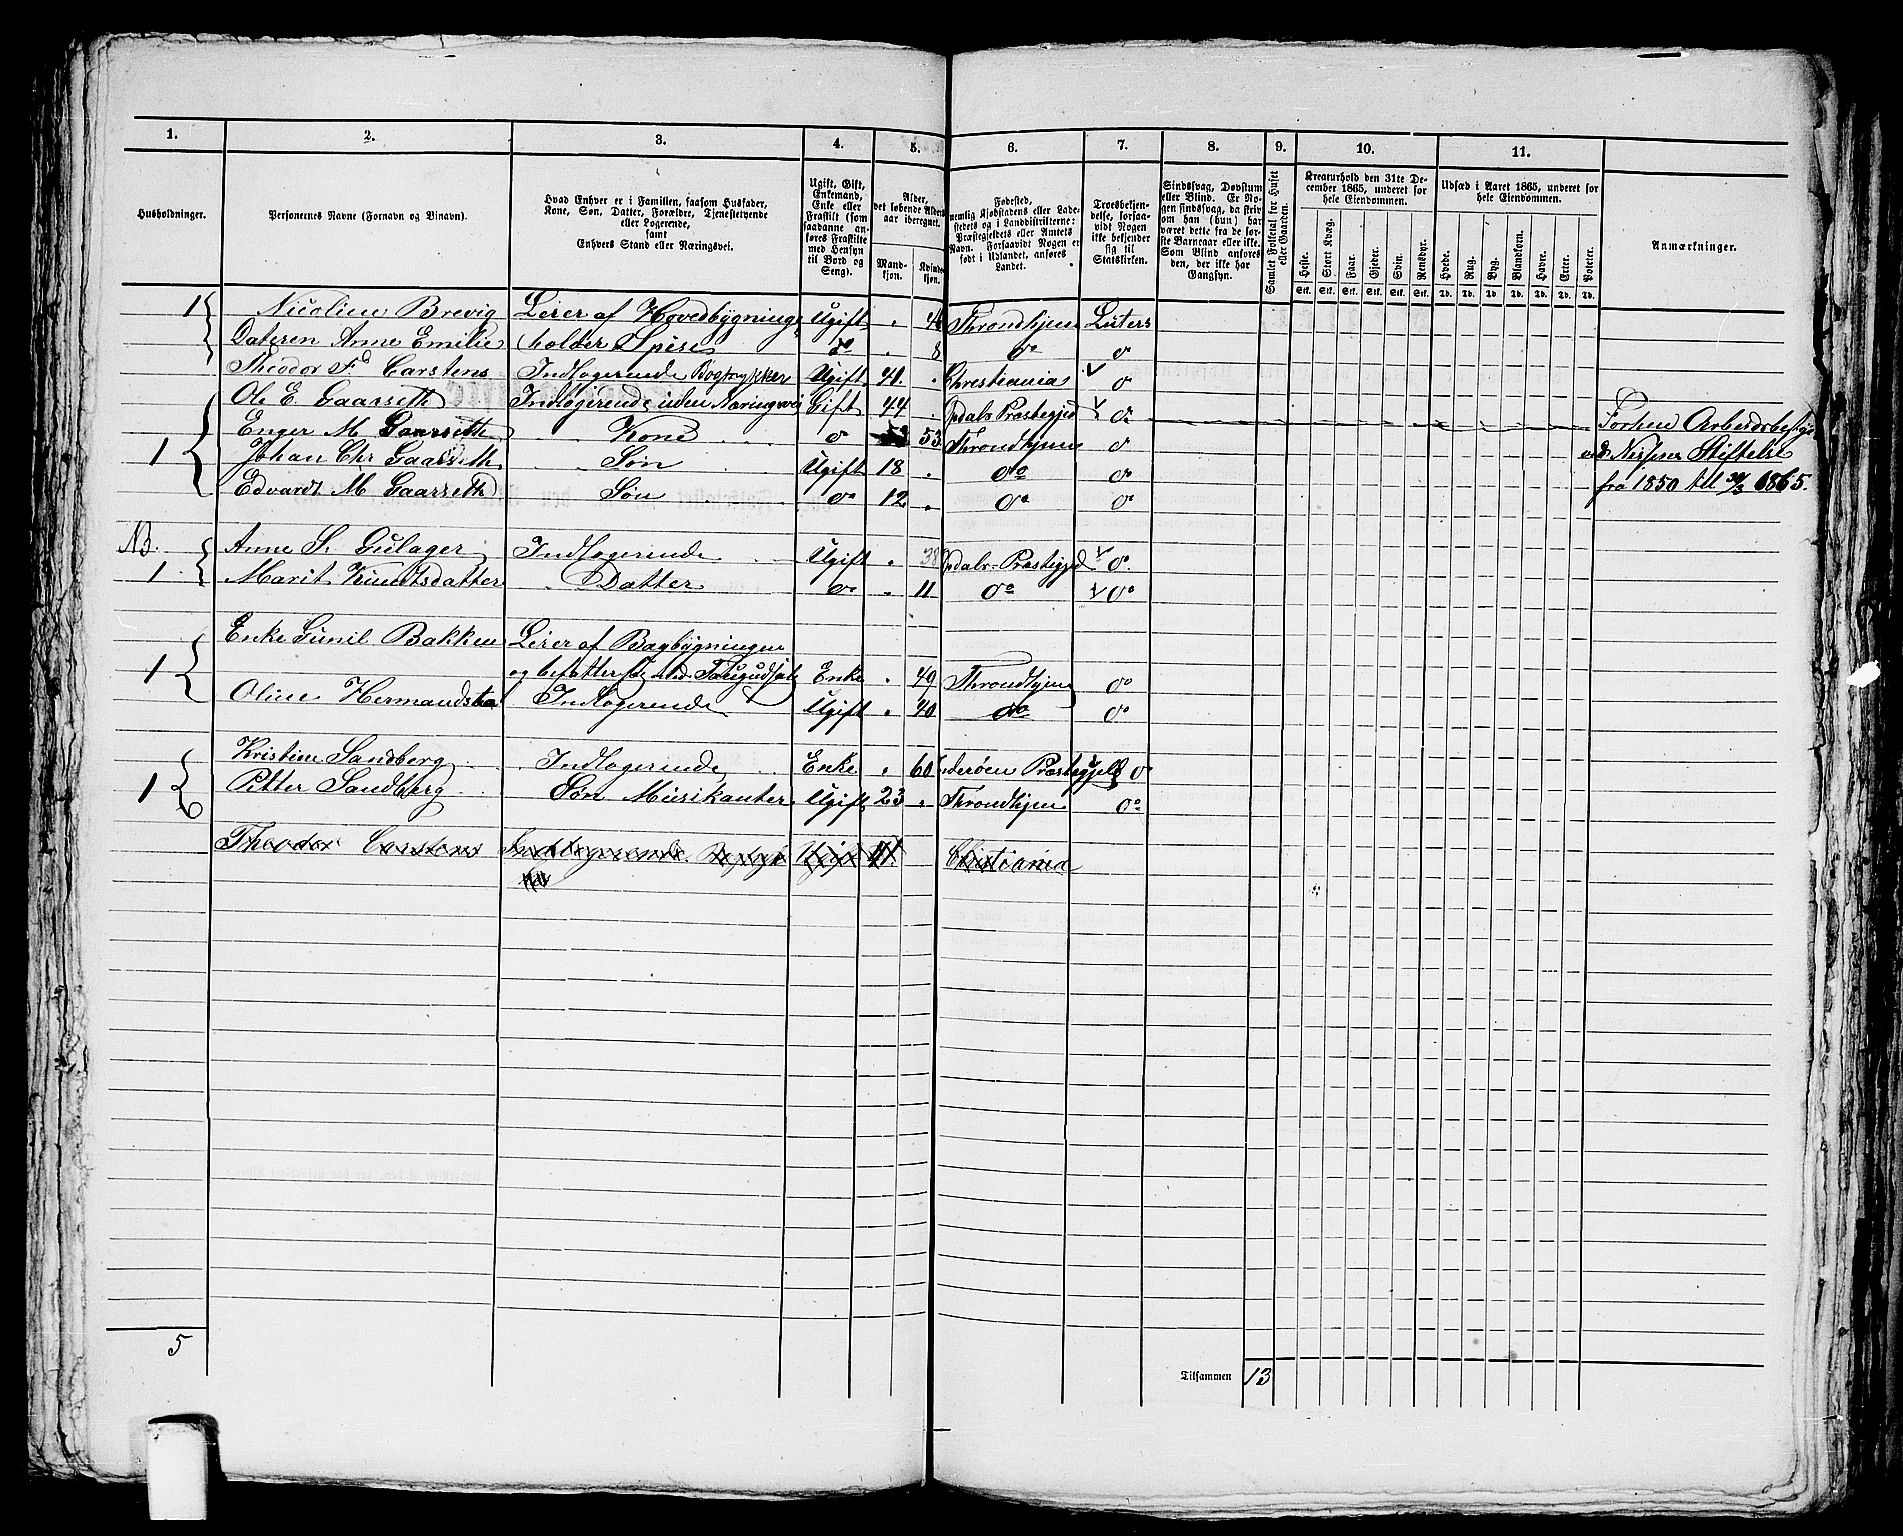 1. 2. 3. 4. 5. 6. 7. 8. 9. 10. 11.
Husholdninger.
Personernes Navne (Fornavn og Binavn).
Hvad Enhver er i Familien, saasom Husfader,
Kone, Søn, Datter, Forældre, Tjenestetyende
eller Logerende,
samt
Enhvers Stand eller Næringsvei.
Ugift, Gift,
Enkemand,
Enke eller
Fraskilt (som
saadanne an-
føres Fraskilte
med Hensyn
til Bord og
Seng).
Alder,
det løbende Alders-
aar iberegnet.
Mand-
kjøn.
Kvinde-
kjøn.
Fødested,
nemlig Kjøbstadens eller Lade-
stedets og i Landdistrikterne:
Præstegjeldets eller Amtets
Navn. Forsaavidt Nogen er
født i Udlandet, anføres
Landet.
Troesbekjen-
delse, forsaa-
vidt Nogen
ikke bekjender
sig til
Statskirken.
Sindssvag, Døvstum
eller Blind. Er No-
gen sindssvag, da skriv
om han (hun) har
været dette fra de før-
ste Barneaar eller ikke.
Som Blind anføres
den, der ikke har
Gangsyn.
Samlet Folketal for Huset
eller Gaarden.
Kreaturhold den 31te De-
cember 1865, underet for
hele Eiendommen.
Heste. Stort Kvæg. Faar. Gjeder. Svin. Rensdyr.
Stk. Stk. Stk. Stk. Stk. Stk.
Udsæd i Aaret 1865, underet for
hele Eiendommen.
Hvede. Rug. Byg. Blandkorn. Havre. Erter. Poteter.
Td. Td. Td. Td. Td. Td. Td.
Anmærkninger.
1 Nicoline Brevig Leier af Hovedbygninge Ugift " Throndhjem Luters
Datteren Anne Emilie holder Spise do " 8 do o
Theodor Fd Carstens Indlogerende Bogtrykker Ugift 41. " Christiania o
Ole E. Gaarseth Indlogerende uden Næringsvei Gift 44 " Opdals Præstegjed o Forhen Arbeidsbesty
Enger M Gaarseth " Kone o 53 Throndhjem o
1 Johan Chr Gaarseth " Søn Ugift 18 " do o Stiftelse
Edvardt M Gaarseth " Søn o 12 " do o fra 1850 til 1865.
NB. Anne S. Gulager Indlogerende Ugift " 38 Opdals Præstegjd o
1 Marit Knudtsdatter " Datter o " 11 do o
Enke Gunil Bakken Leier af Bagbygningen
1 og befatter sig med Enke " 49 Throndhjem o
Oline Hermandsta Indlogerende Ugift " 40 do o
Kristine Sandberg Indlogerende Enke " 60 Inderøen Præstegjeld o
1 Petter Sandberg Søn Musikanter Ugift 23 " Throndhjem o
Theodor Carstens Indlogerende Ugift 41 Christiania
5
Tilsammen 13